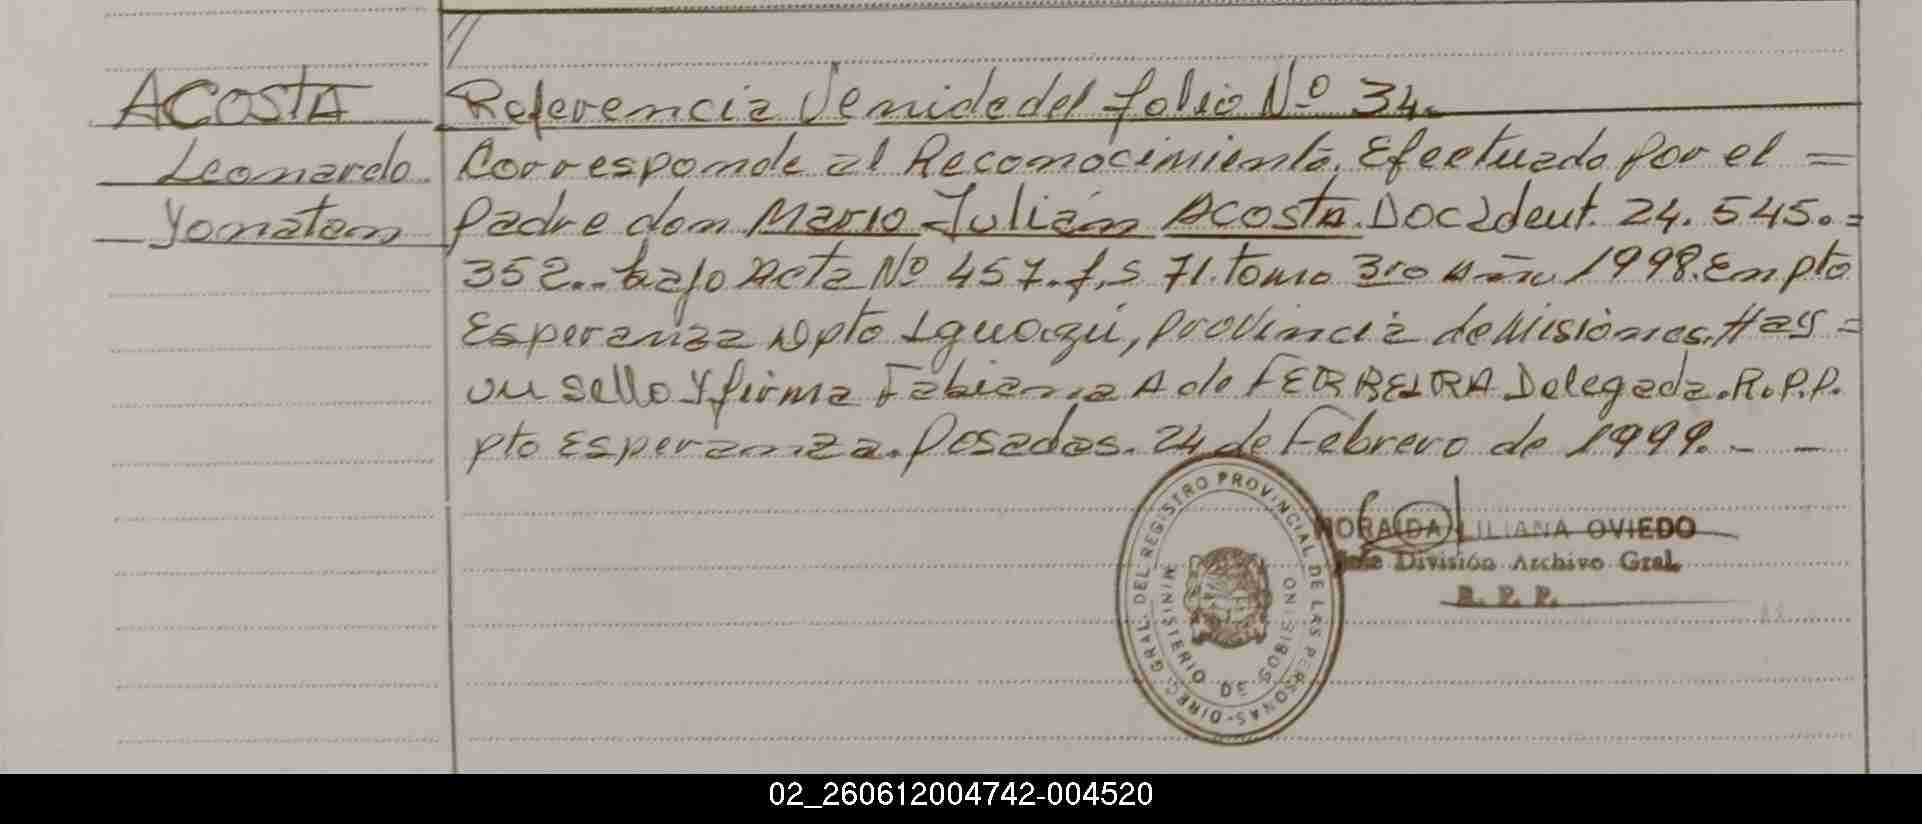 ACOSTA
Leonardo
Yonatan
Referencia Venidedel folio Nº 34.
Corresponde al Reconocimiento. Efectuado por el =
Padre don Mario Julián ACOSTA. Doc Ident. 24. 545. =
352.. bajo Acta Nº 457. f,s 71. tomo 3ro Año 1998. En pto
Esperanza Dpto Iguazú, provincia de Misiones. Hay =
un sello y firma Fabiana A de FERREIRA Delegada. R.P.P.
pto Esperanza. Posadas. 24 de Febrero de 1999. - -
DIREC. GRAL. DEL REGISTRO PROVINCIAL DE LAS PERSONAS-
MINISTERIO DE GOBIERNO
MORAIDA LILIANA OVIEDO
Jefe División Archivo Gral.
R. P. P.
02_260612004742-004520